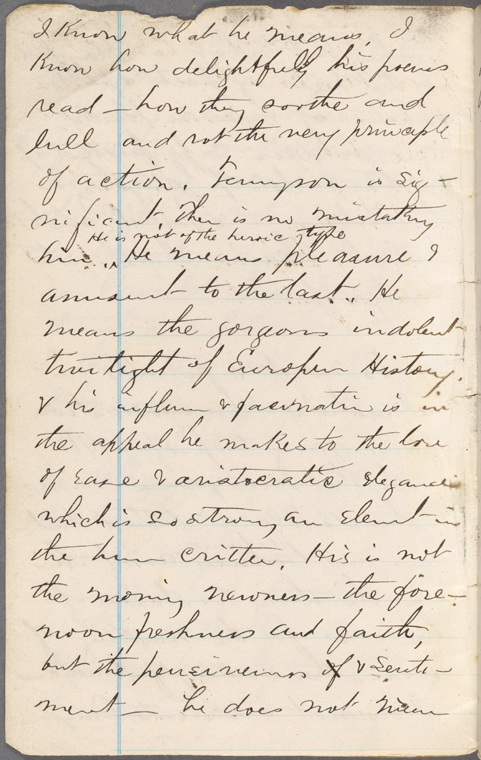 I know what he means, I
know how delightfully his poems
read — how they soothe and
lull and rot the very principle
of action. Tennyson is sig-
nificant. Ther is no mistaking
He is not of the heroic type
him. He means pleasure &
amusment to the last. He
means the gorgeous indolent
twilight of European History.
& his influence & fascination is in
the appeal he makes to the love
of ease & aristocratic elegance
which is so strong an element in
the human critter. His is not
the morning newness — the fore-
noon freshness and faith,
but the pensiveness & senti-
ment — he does not mean